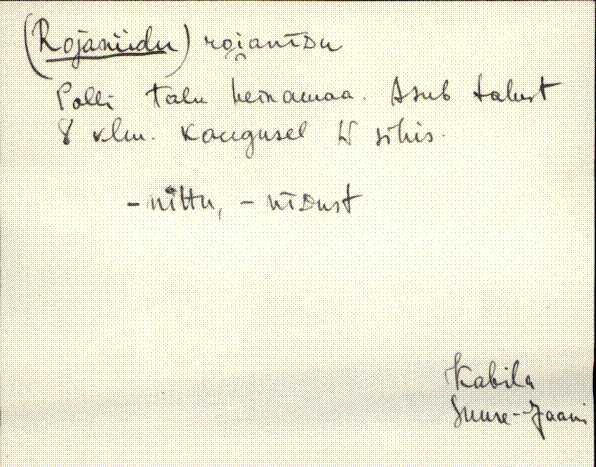 (Rojaniidu) roi̯anīDu
Polli talu heinamaa. Asub talust
8 klm. kaugusel W sihis.
-nīttu, -nīDust
Kabila
Suure-Jaani